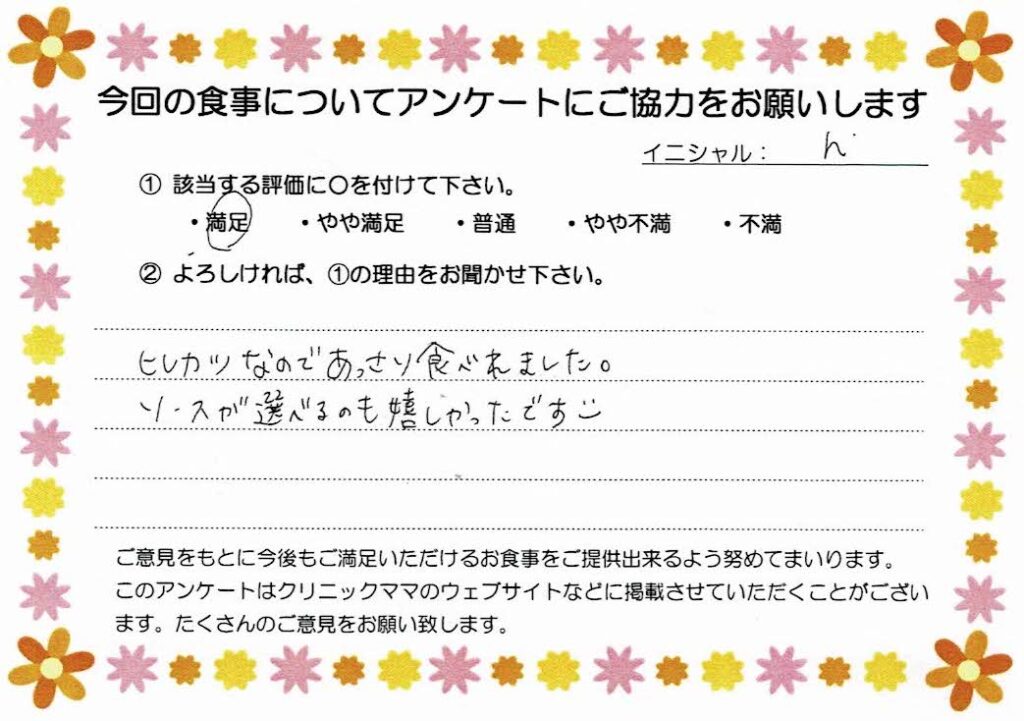 今回の食事についてアンケートにご協力をお願いします
イニシャル： h
① 該当する評価に〇を付けて下さい。
・満足 ・やや満足 ・普通 ・やや不満 ・不満
② よろしければ、①の理由をお聞かせ下さい。
ヒレカツなのであっさり食べれました。
ソースが選べるのも嬉しかったです
ご意見をもとに今後もご満足いただけるお食事をご提供出来るよう努めてまいります。
このアンケートはクリニックママのウェブサイトなどに掲載させていただくことがござい
ます。たくさんのご意見をお願い致します。